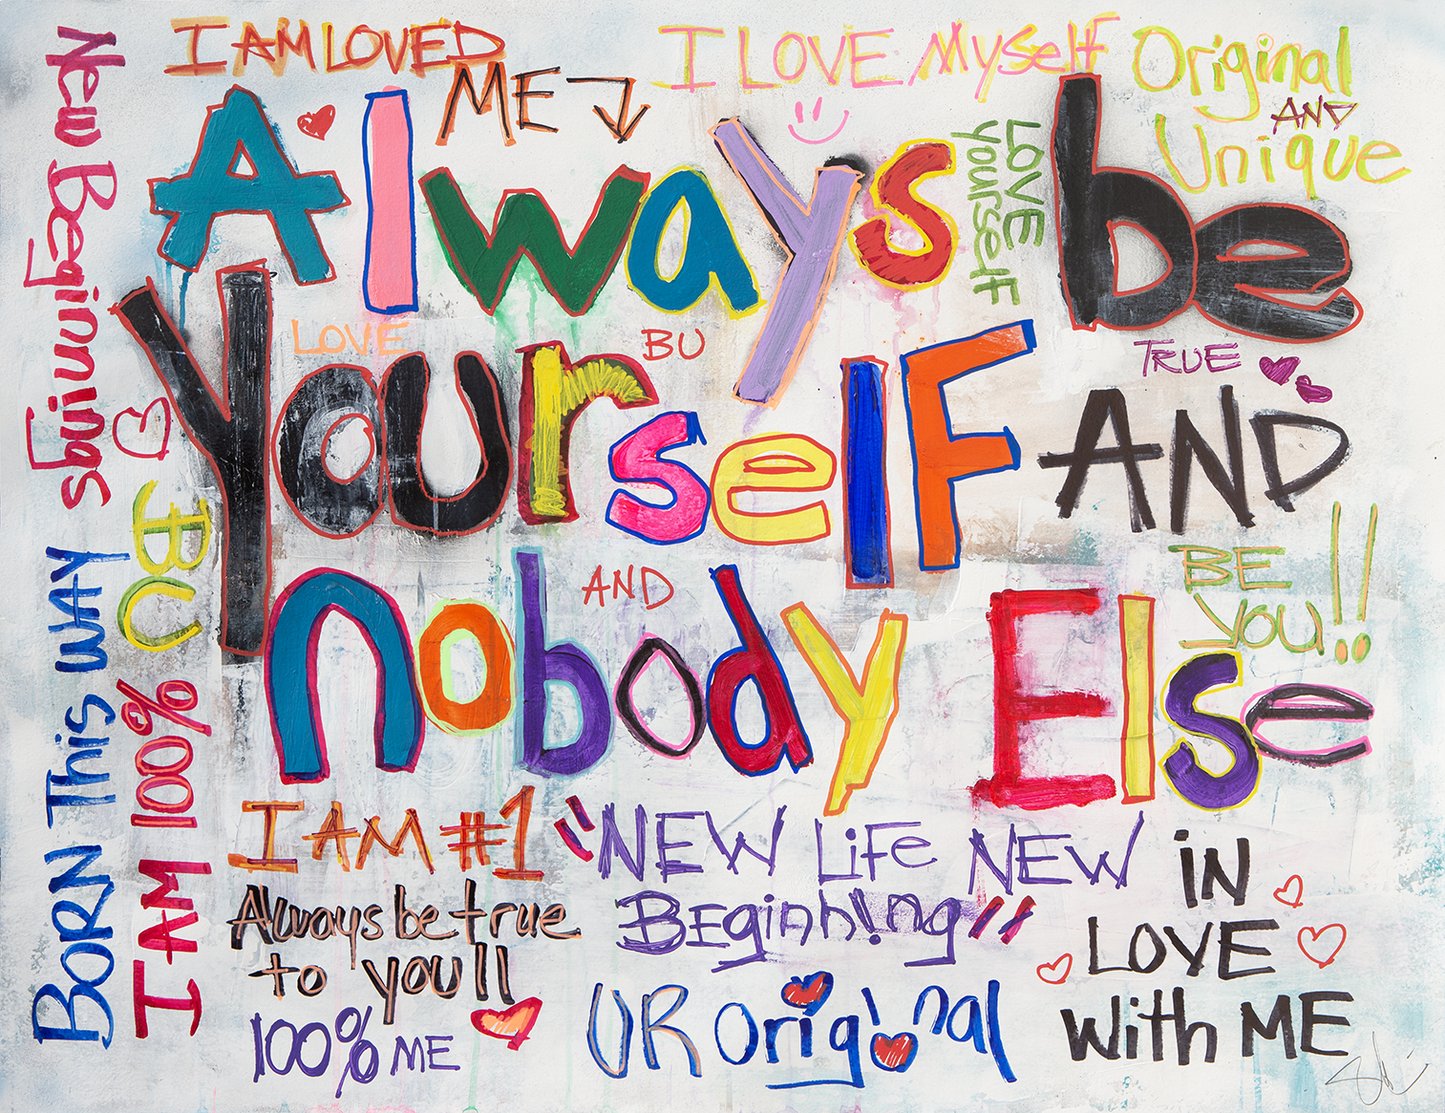 I AM LOVED
ME
I LOVE MYSelf
Original
AND
Unique
Always be
LOVE
YOURSelF
New Beginnings
LOVE
BU
TRUE
YourselF AND
BU
BE
YOU!!
AND
nobody Else
BORN This WAY
I AM 100%
I AM #1
"NEW LiFe NEW
BEginn!ng"
iN
LOVE
With ME
Always be true
to you!!
100% ME
UR Original